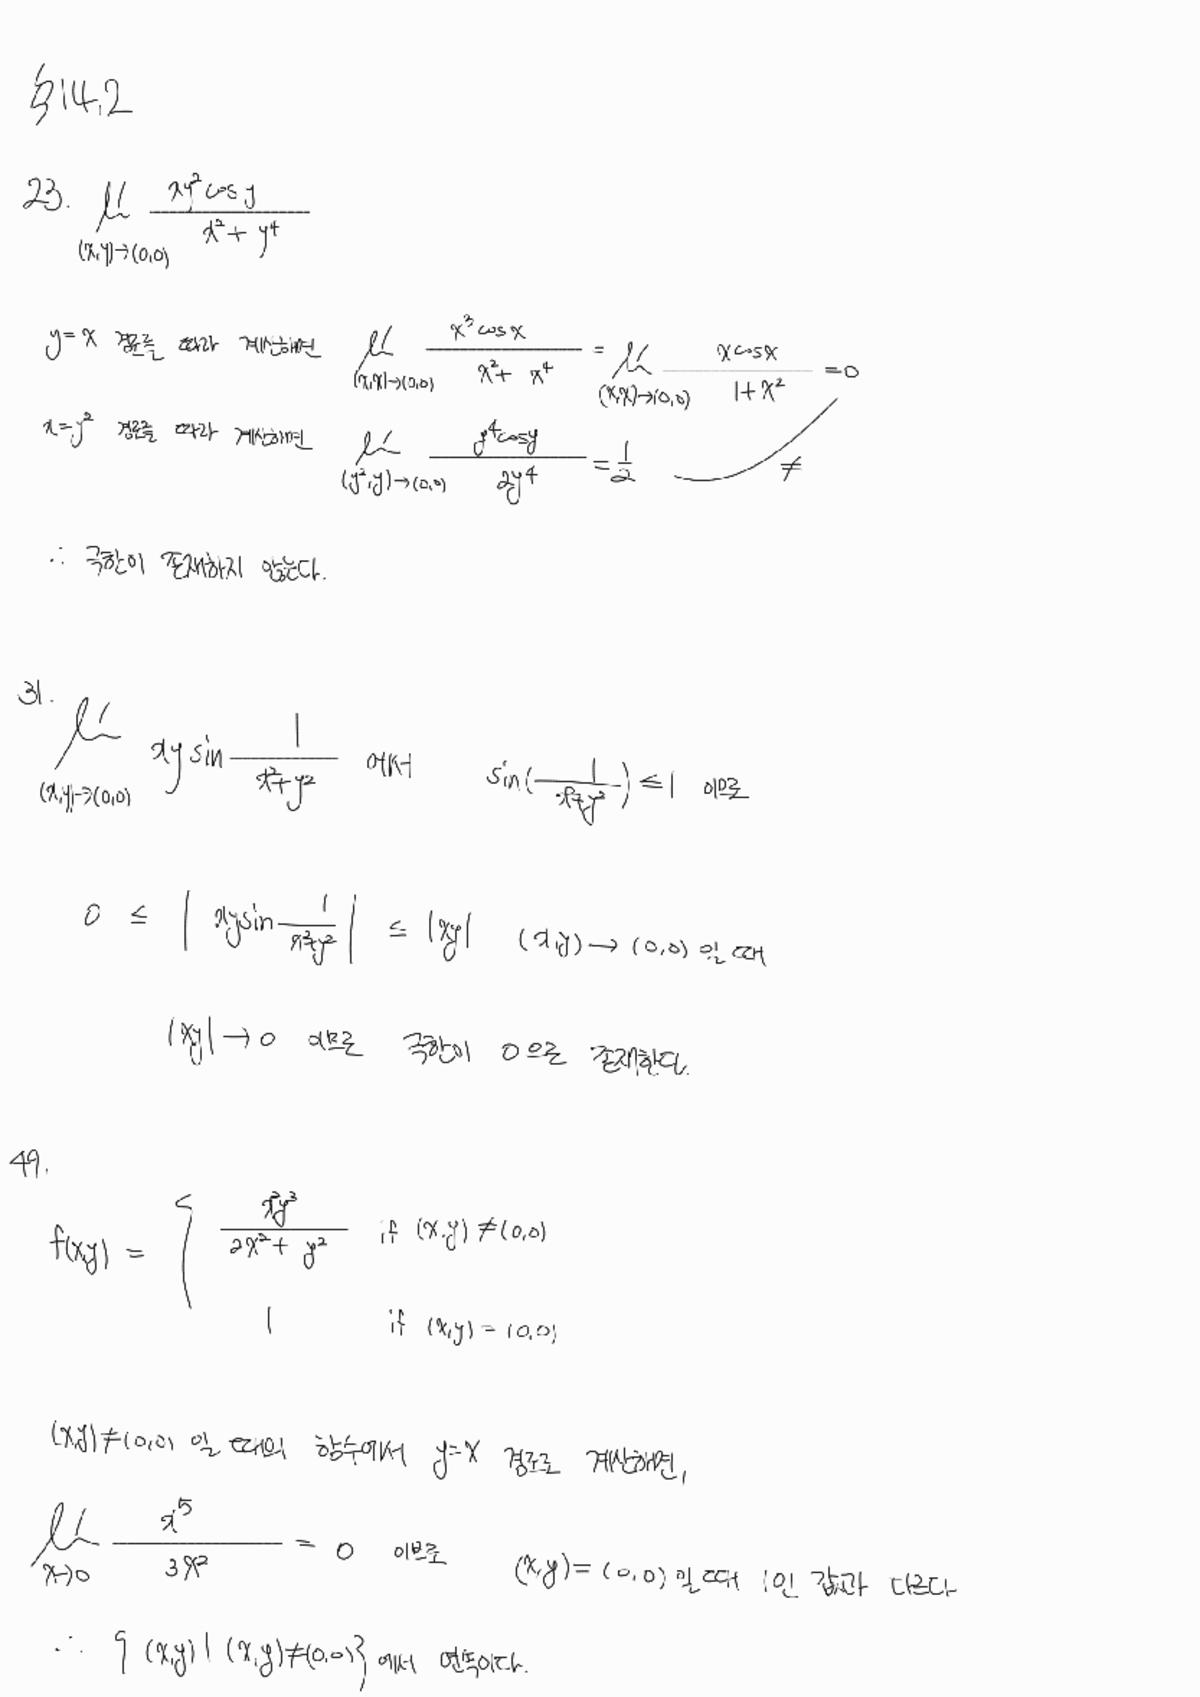 §14.2
23. lim_{(x,y)→(0,0)} \frac{xy^2 cos y}{x^2 + y^4}
y=x 경로를 따라 계산하면 lim_{(x,x)→(0,0)} \frac{x^3 cos x}{x^2 + x^4} = lim_{(x,x)→(0,0)} \frac{x cos x}{1 + x^2} = 0
x=y^2 경로를 따라 계산하면 lim_{(y^2,y)→(0,0)} \frac{y^4 cos y}{2y^4} = \frac{1}{2} ≠
∴ 극한이 존재하지 않는다.
31. lim_{(x,y)→(0,0)} xy sin \frac{1}{x^2+y^2} 에서 sin(\frac{1}{x^2+y^2}) ≤ 1 이므로
0 ≤ | xy sin \frac{1}{x^2+y^2} | ≤ |xy| (x,y) → (0,0) 일 때
|xy| → 0 이므로 극한이 0으로 존재한다.
49.
f(x,y) = { \frac{x^2y^3}{2x^2 + y^2} if (x,y) ≠ (0,0)
1 if (x,y) = (0,0)
(x,y) ≠ (0,0) 일 때의 함수에서 y=x 경로로 계산해면,
lim_{x→0} \frac{x^5}{3x^2} = 0 이므로 (x,y) = (0,0) 일 때 1인 값과 다르다
∴ { (x,y) | (x,y) ≠ (0,0) } 에서 연속이다.